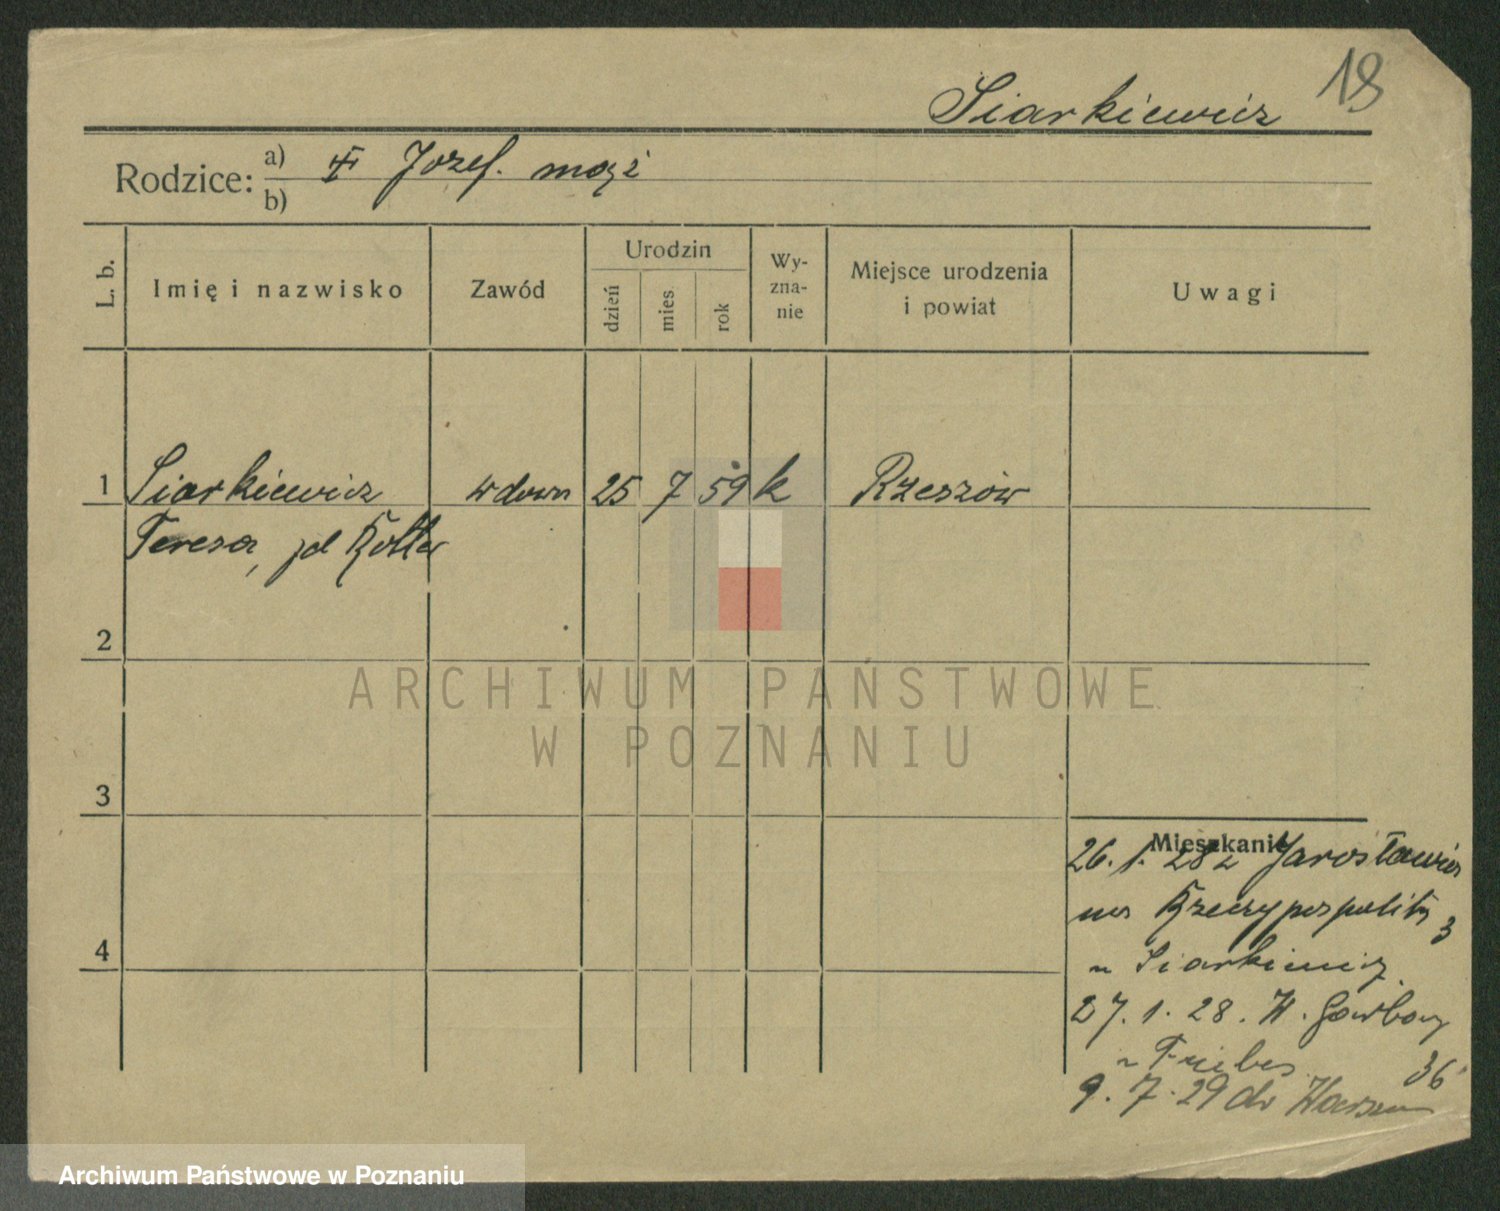 18
Siarkiewicz
Rodzice: a) Józef. mąż
b)
L. b.
Imię i nazwisko
Zawód
Urodzin
dzień
mies.
rok
Wy-
zna-
nie
Miejsce urodzenia
i powiat
Uwagi
1 Siarkiewicz wdowa 25 7 59 k Rzeszów
Teresa,
2
3
4
Mieszkanie
26. 1. 28 z Jarosławia
na Rzeczypospolitej 3
Siarkiewicz
27. 1. 28. W. Garbary
36
9. 7. 29 do
ARCHIWUM PAŃSTWOWE
W POZNANIU
Archiwum Państwowe w Poznaniu